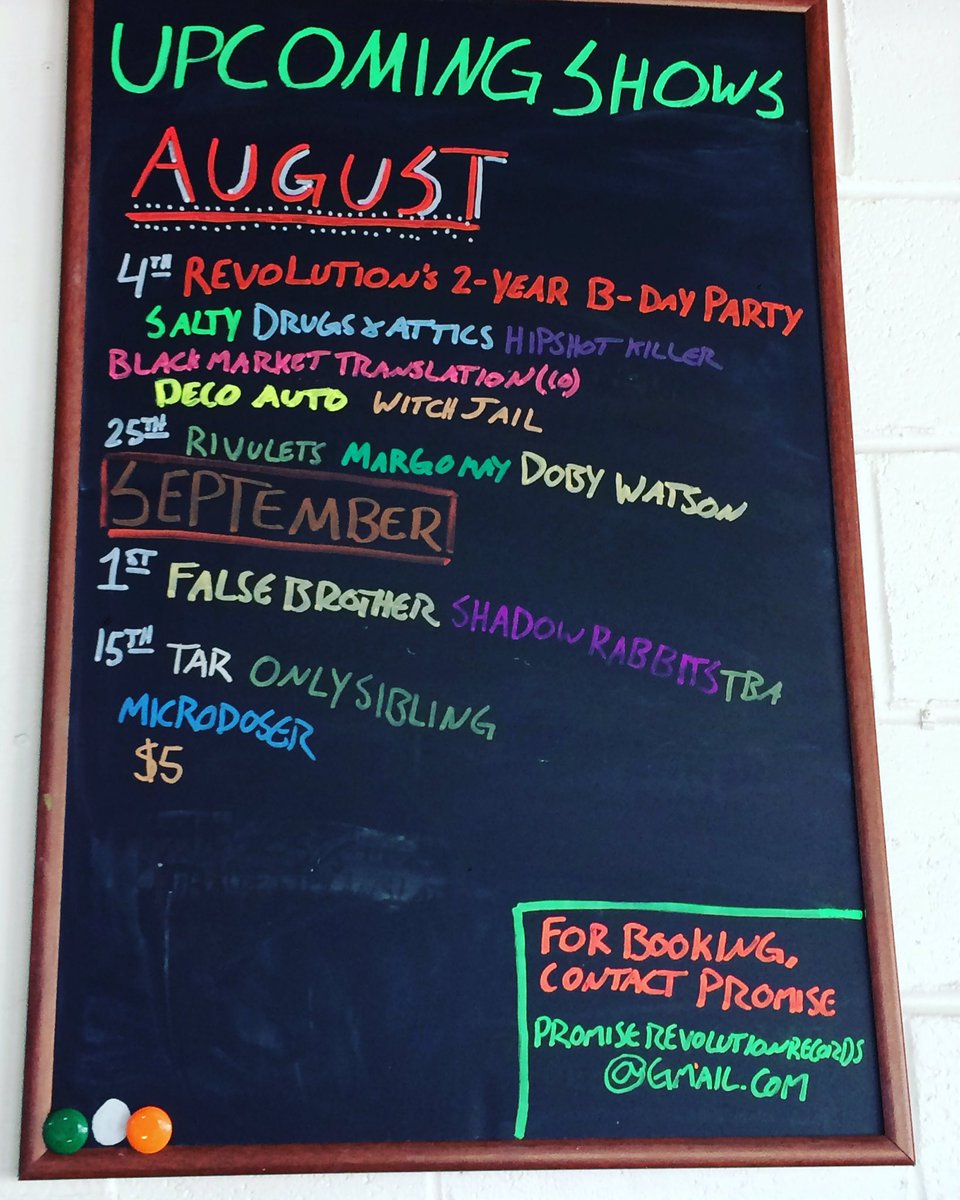 UPCOMING SHOWS
AUGUST
4TH REVOLUTION'S 2-YEAR B-DAY PARTY
SALTY DRUGS & ATTICS HIPSHOT KILLER
BLACK MARKET TRANSLATION (CO)
DECO AUTO WITCH JAIL
25TH RIVULETS MARGO MAY DOBY WATSON
SEPTEMBER
1ST FALSE BROTHER SHADOW RABBITS TBA
15TH TAR ONLY SIBLING
MICRODOSER
$5
FOR BOOKING,
CONTACT PROMISE
PROMISEREVOLUTIONRECORDS
@GMAIL.COM